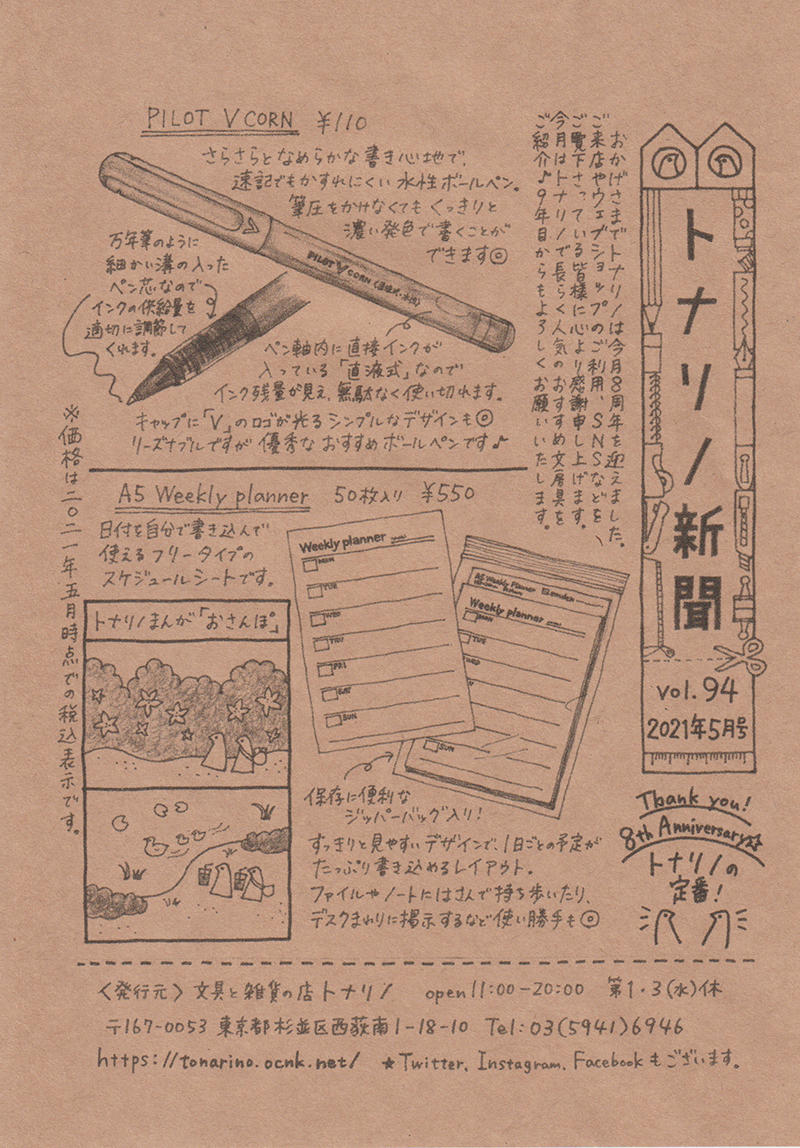 トナリノ新聞
vol.94
2021年5月号
おかげさまでトナリノは今月8周年を迎えました。
ご来店やウェブショップのご利用、SNSなどを
ご覧下さっている皆様に心より感謝申し上げます。
今月はトナリノで長らく人気のおすすめ文房具を
ご紹介♪9年目からもよろしくお願いいたします。
PILOT V CORN ¥110
さらさらとなめらかな書き心地で、
速記でもかすれにくい水性ボールペン。
筆圧をかけなくてもくっきりと
濃い発色で書くことが
できます◎
PILOT V CORN (直液式・水性)
万年筆のように
細かい溝の入った
ペン芯なので
インクの供給量を
適切に調節して
くれます。
ペン軸内に直接インクが
入っている「直液式」なので
インク残量が見え、無駄なく使い切れます。
キャップに「V」のロゴが光るシンプルなデザインも◎
リーズナブルですが優秀なおすすめボールペンです♪
A5 Weekly planner 50枚入り ¥550
日付を自分で書き込んで
使えるフリータイプの
スケジュールシートです。
Weekly planner
MON
TUE
WED
THU
FRI
SAT
SUN
A5 Weekly Planner
Weekly planner
MON
TUE
WED
SUN
保存に便利な
ジッパーバッグ入り!
すっきりと見やすいデザインで、1日ごとの予定が
たっぷり書き込めるレイアウト。
ファイルやノートにはさんで持ち歩いたり、
デスクまわりに掲示するなど使い勝手も◎
トナリノまんが「おさんぽ」
※価格は二〇二一年五月時点での税込表示です。
Thank you!
8th Anniversary
トナリノの
定番!
〈発行元〉文具と雑貨の店トナリノ open 11:00-20:00 第1・3(水)休
〒167-0053 東京都杉並区西荻南1-18-10 Tel:03(5941)6946
https://tonarino.ocnk.net/ ★Twitter, Instagram, Facebookもございます。